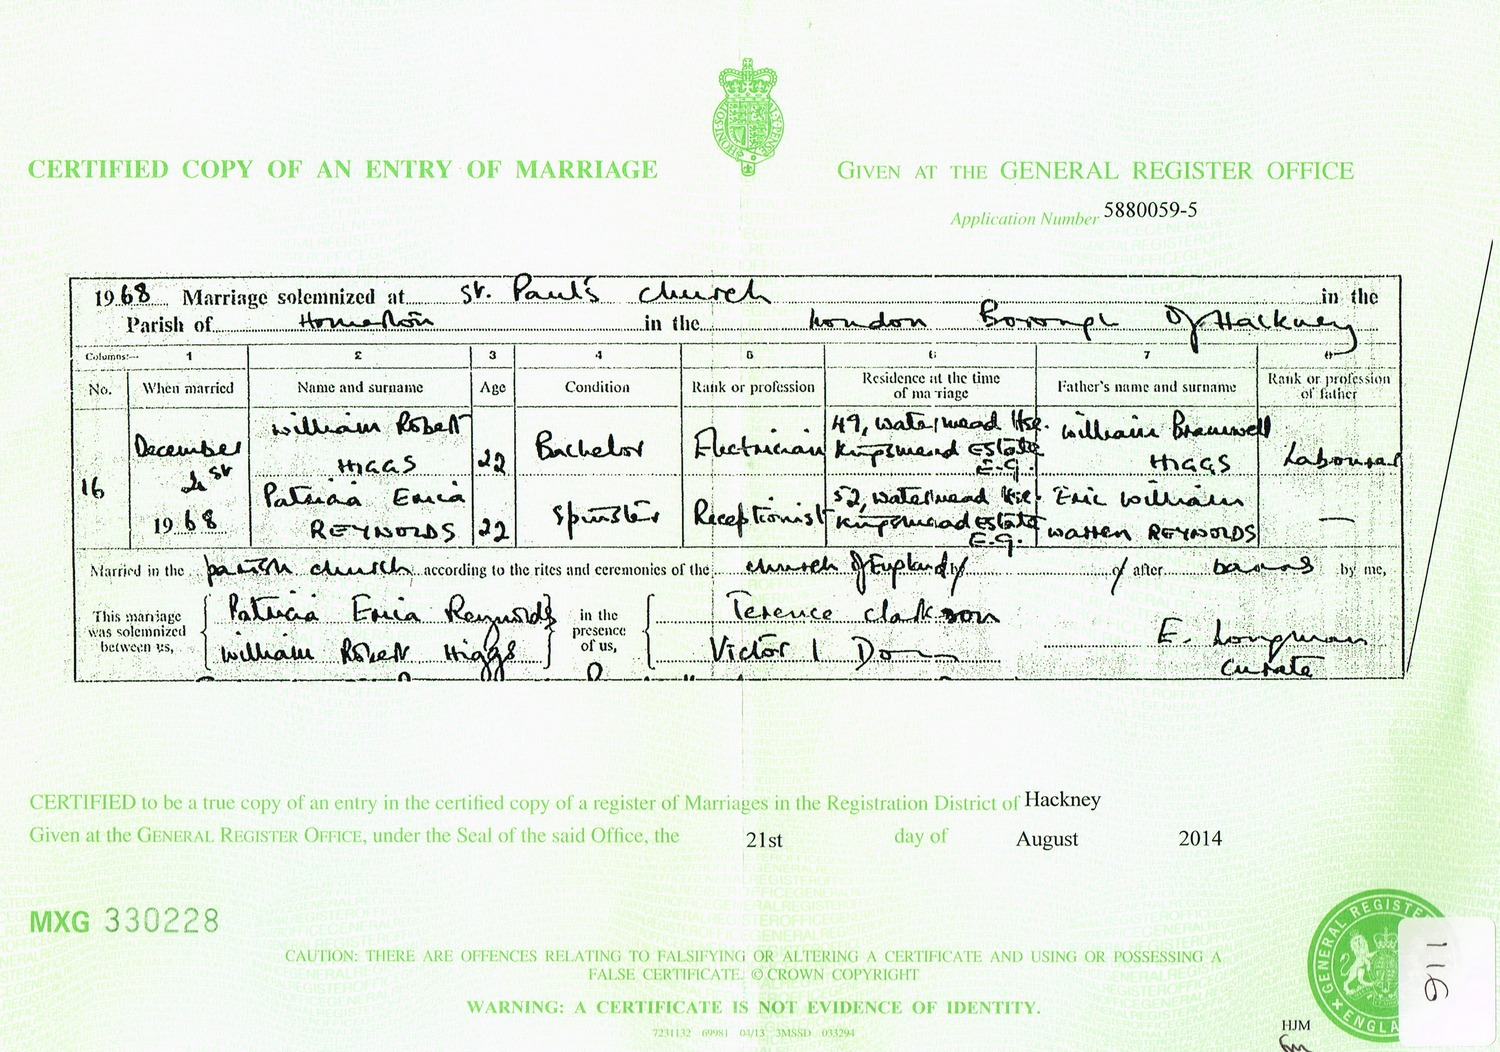 CERTIFIED COPY OF AN ENTRY OF MARRIAGE
GIVEN AT THE GENERAL REGISTER OFFICE
Application Number 5880059-5
1968 Marriage solemnized at St. Paul's Church in the
Parish of Homerton in the London Borough Of Hackney
Columns:— 1 2 3 4 5 6 7 8
No. When married Name and surname Age Condition Rank or profession Residence at the time of marriage Father's name and surname Rank or profession of father
16 December 1968
William Robert HIGGS 22 Bachelor Electrician 49, Watermead Hse. Kingsmead Estate E.9. William Bramwell HIGGS Labourer
Patricia Erica REYNOLDS 22 Spinster Receptionist 52, Watermead Hse. Kingsmead Estate E.9. Eric William Warren REYNOLDS —
Married in the parish church according to the rites and ceremonies of the Church of England by or after banns by me,
This marriage was solemnized between us,
Patricia Erica Reynolds
William Robert Higgs
in the presence of us,
Terence Clarkson
Victor I
E. Longman
Curate
CERTIFIED to be a true copy of an entry in the certified copy of a register of Marriages in the Registration District of Hackney
Given at the GENERAL REGISTER OFFICE, under the Seal of the said Office, the 21st day of August 2014
MXG 330228
CAUTION: THERE ARE OFFENCES RELATING TO FALSIFYING OR ALTERING A CERTIFICATE AND USING OR POSSESSING A
FALSE CERTIFICATE. © CROWN COPYRIGHT
WARNING: A CERTIFICATE IS NOT EVIDENCE OF IDENTITY.
7231132 69981 04/13 3MSSD 033294
GENERAL REGISTE
ENGLA
116
HJM